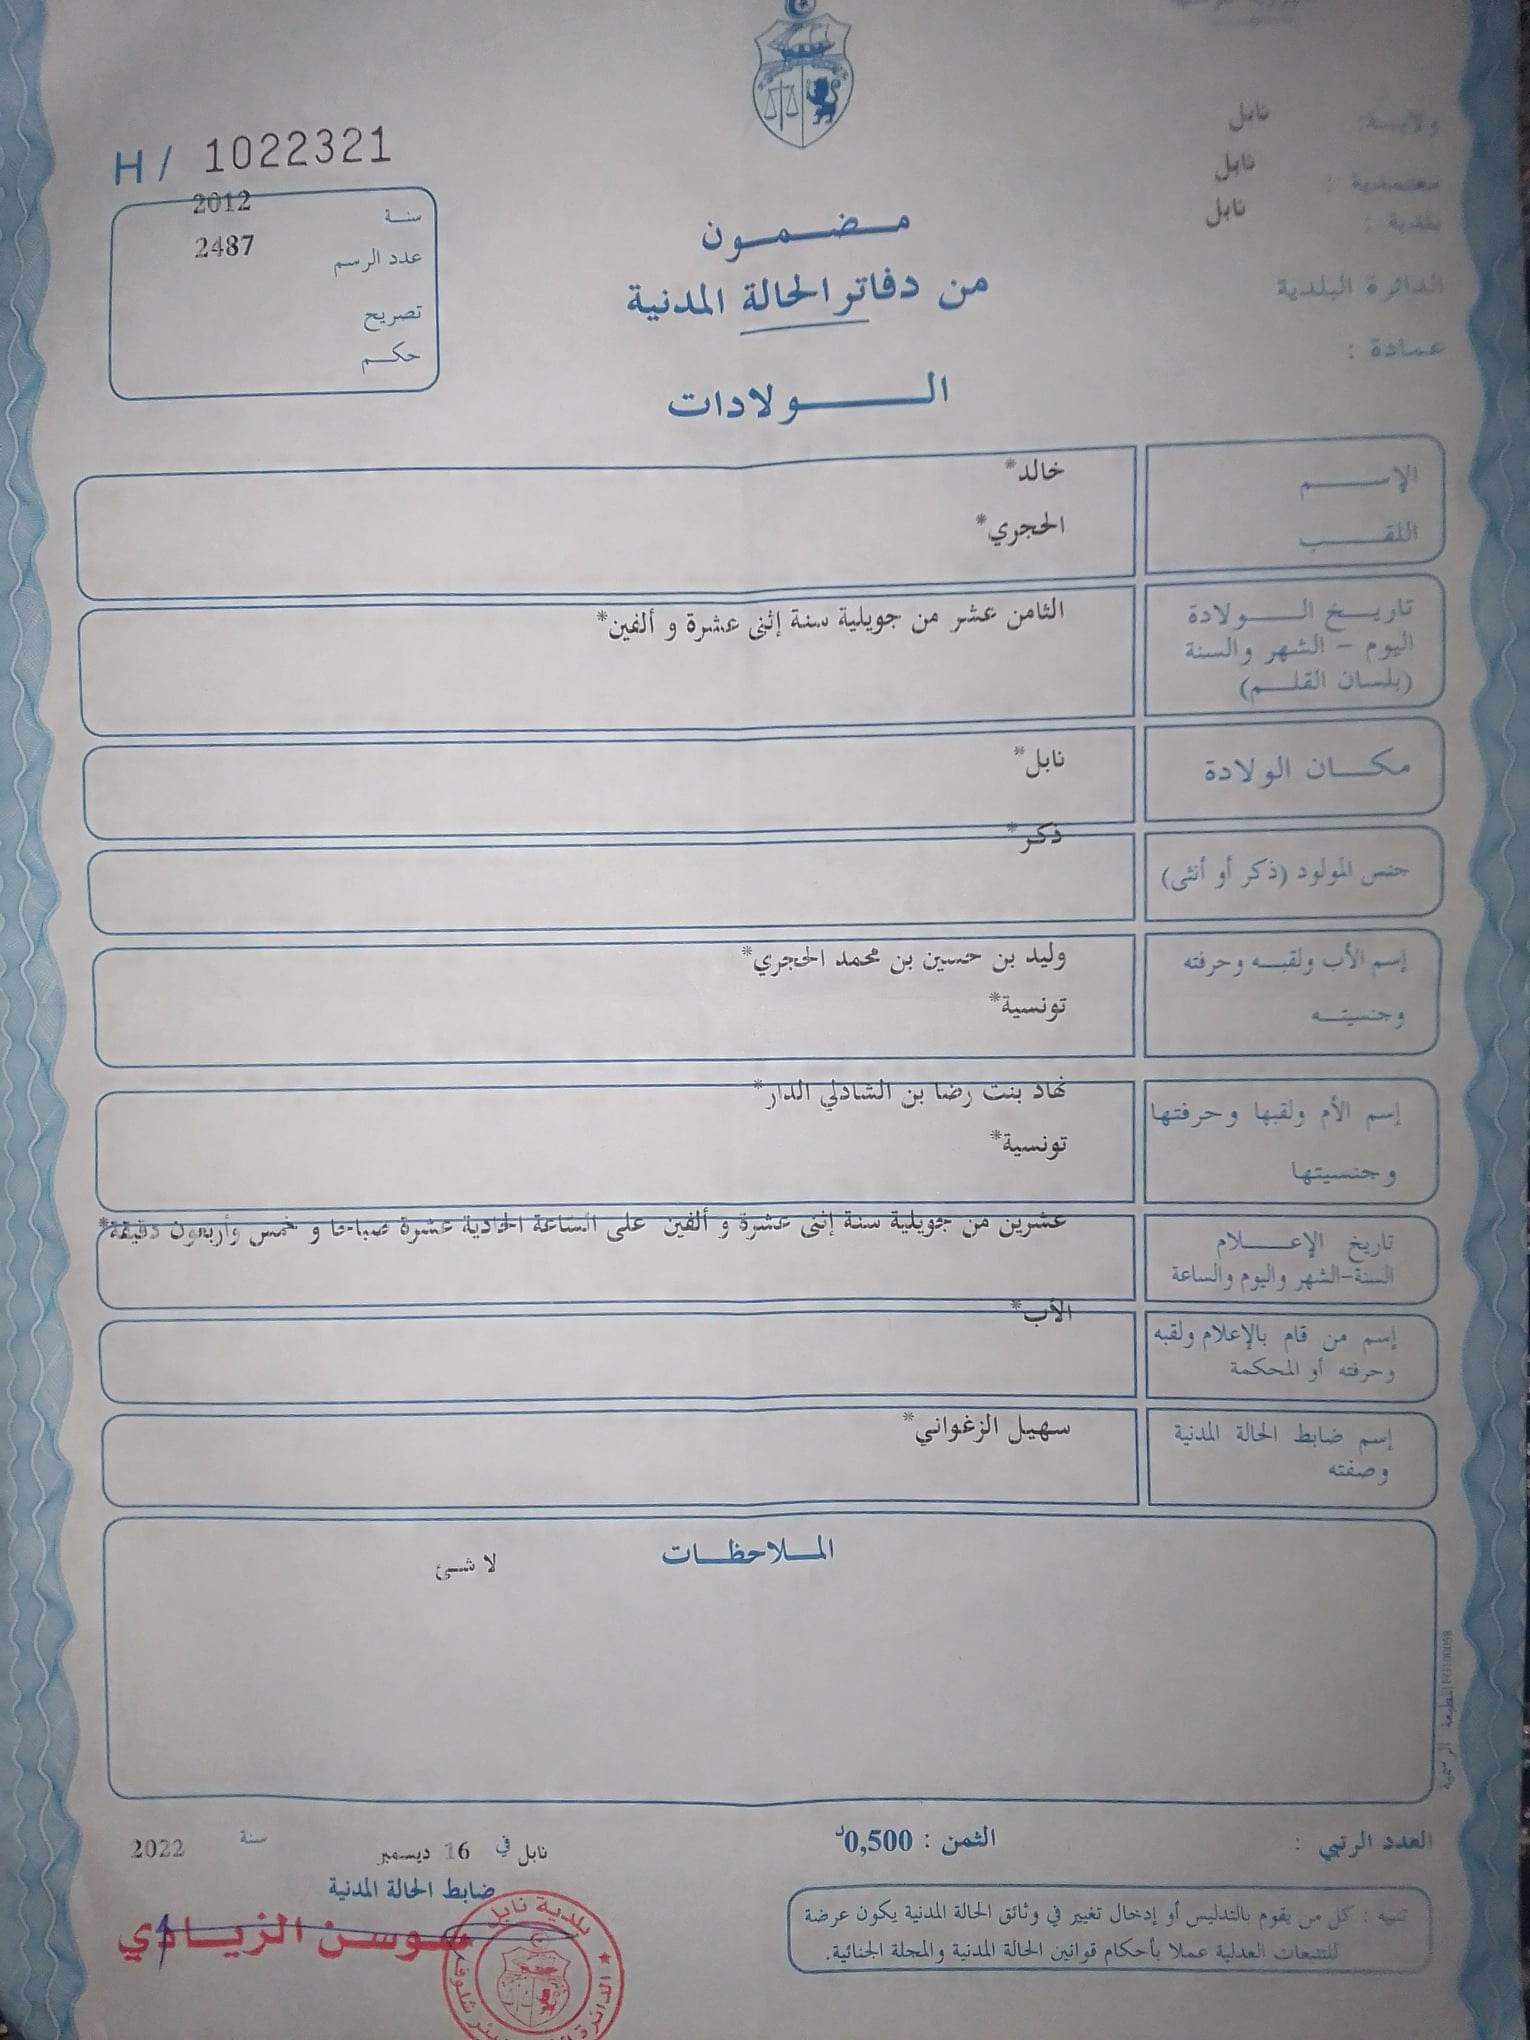 ولايـة: نابل
معتمدية : نابل
بلدية : نابل
الدائرة البلدية
عمادة :
H/ 1022321
سنـة 2012
عدد الرسم 2487
تصريح
حكـم
مـضـمـون
من دفاتر الحالة المدنية
الـولادات
الإسـم خالد*
اللقـب الحجري*
تاريـخ الـولادة الثامن عشر من جويلية سنة إثنى عشرة و ألفين*
اليوم - الشهر والسنة
(بلسان القلـم)
مكـان الولادة نابل*
جنس المولود (ذكر أو أنثى) ذكر*
إسم الأب ولقبـه وحرفته وليد بن حسين بن محمد الحجري*
وجنسيتـه تونسية*
إسم الأم ولقبها وحرفتها نهاد بنت رضا بن الشادلي الدار*
وجنسيتها تونسية*
تاريخ الإعـلام عشرين من جويلية سنة إثنى عشرة و ألفين على الساعة الحادية عشرة صباحا و خمس وأربعون دقيقة*
السنة-الشهر واليوم والساعة
إسم من قام بالإعلام ولقبه الأب*
وحرفته أو المحكمة
إسم ضابط الحالة المدنية سهيل الزغواني*
وصفته
المـلاحظـات
لا شئ
المطبعة الرسمية
العدد الرتبي :
الثمن : 0,500د
نابل في 16 ديسمبر سنة 2022
ضابط الحالة المدنية
سـوسـن الزيـادي
بلدية نابل
تنبيه : كل من يقوم بالتدليس أو إدخال تغيير في وثائق الحالة المدنية يكون عرضة
للتتبعات العدلية عملا بأحكام قوانين الحالة المدنية والمجلة الجنائية.